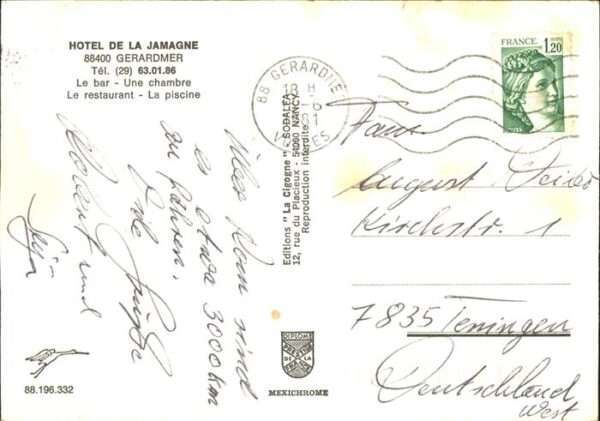 HOTEL DE LA JAMAGNE
88400 GERARDMER
Tél. (29) 63.01.86
Le bar - Une chambre
Le restaurant - La piscine
Über Rom sind
es etwa 3000 km
zu fahren.
Grüße
Robert und
88.196.332
Editions "La Cigogne" - SODALFA
12, rue du Placieux - 54000 NANCY
Reproduction interdite
MEXICHROME
88 GERARDMER
18 H
VOSGES
FRANCE
1,20
August
Kirchstr. 1
7835 Teningen
Deutschland
West